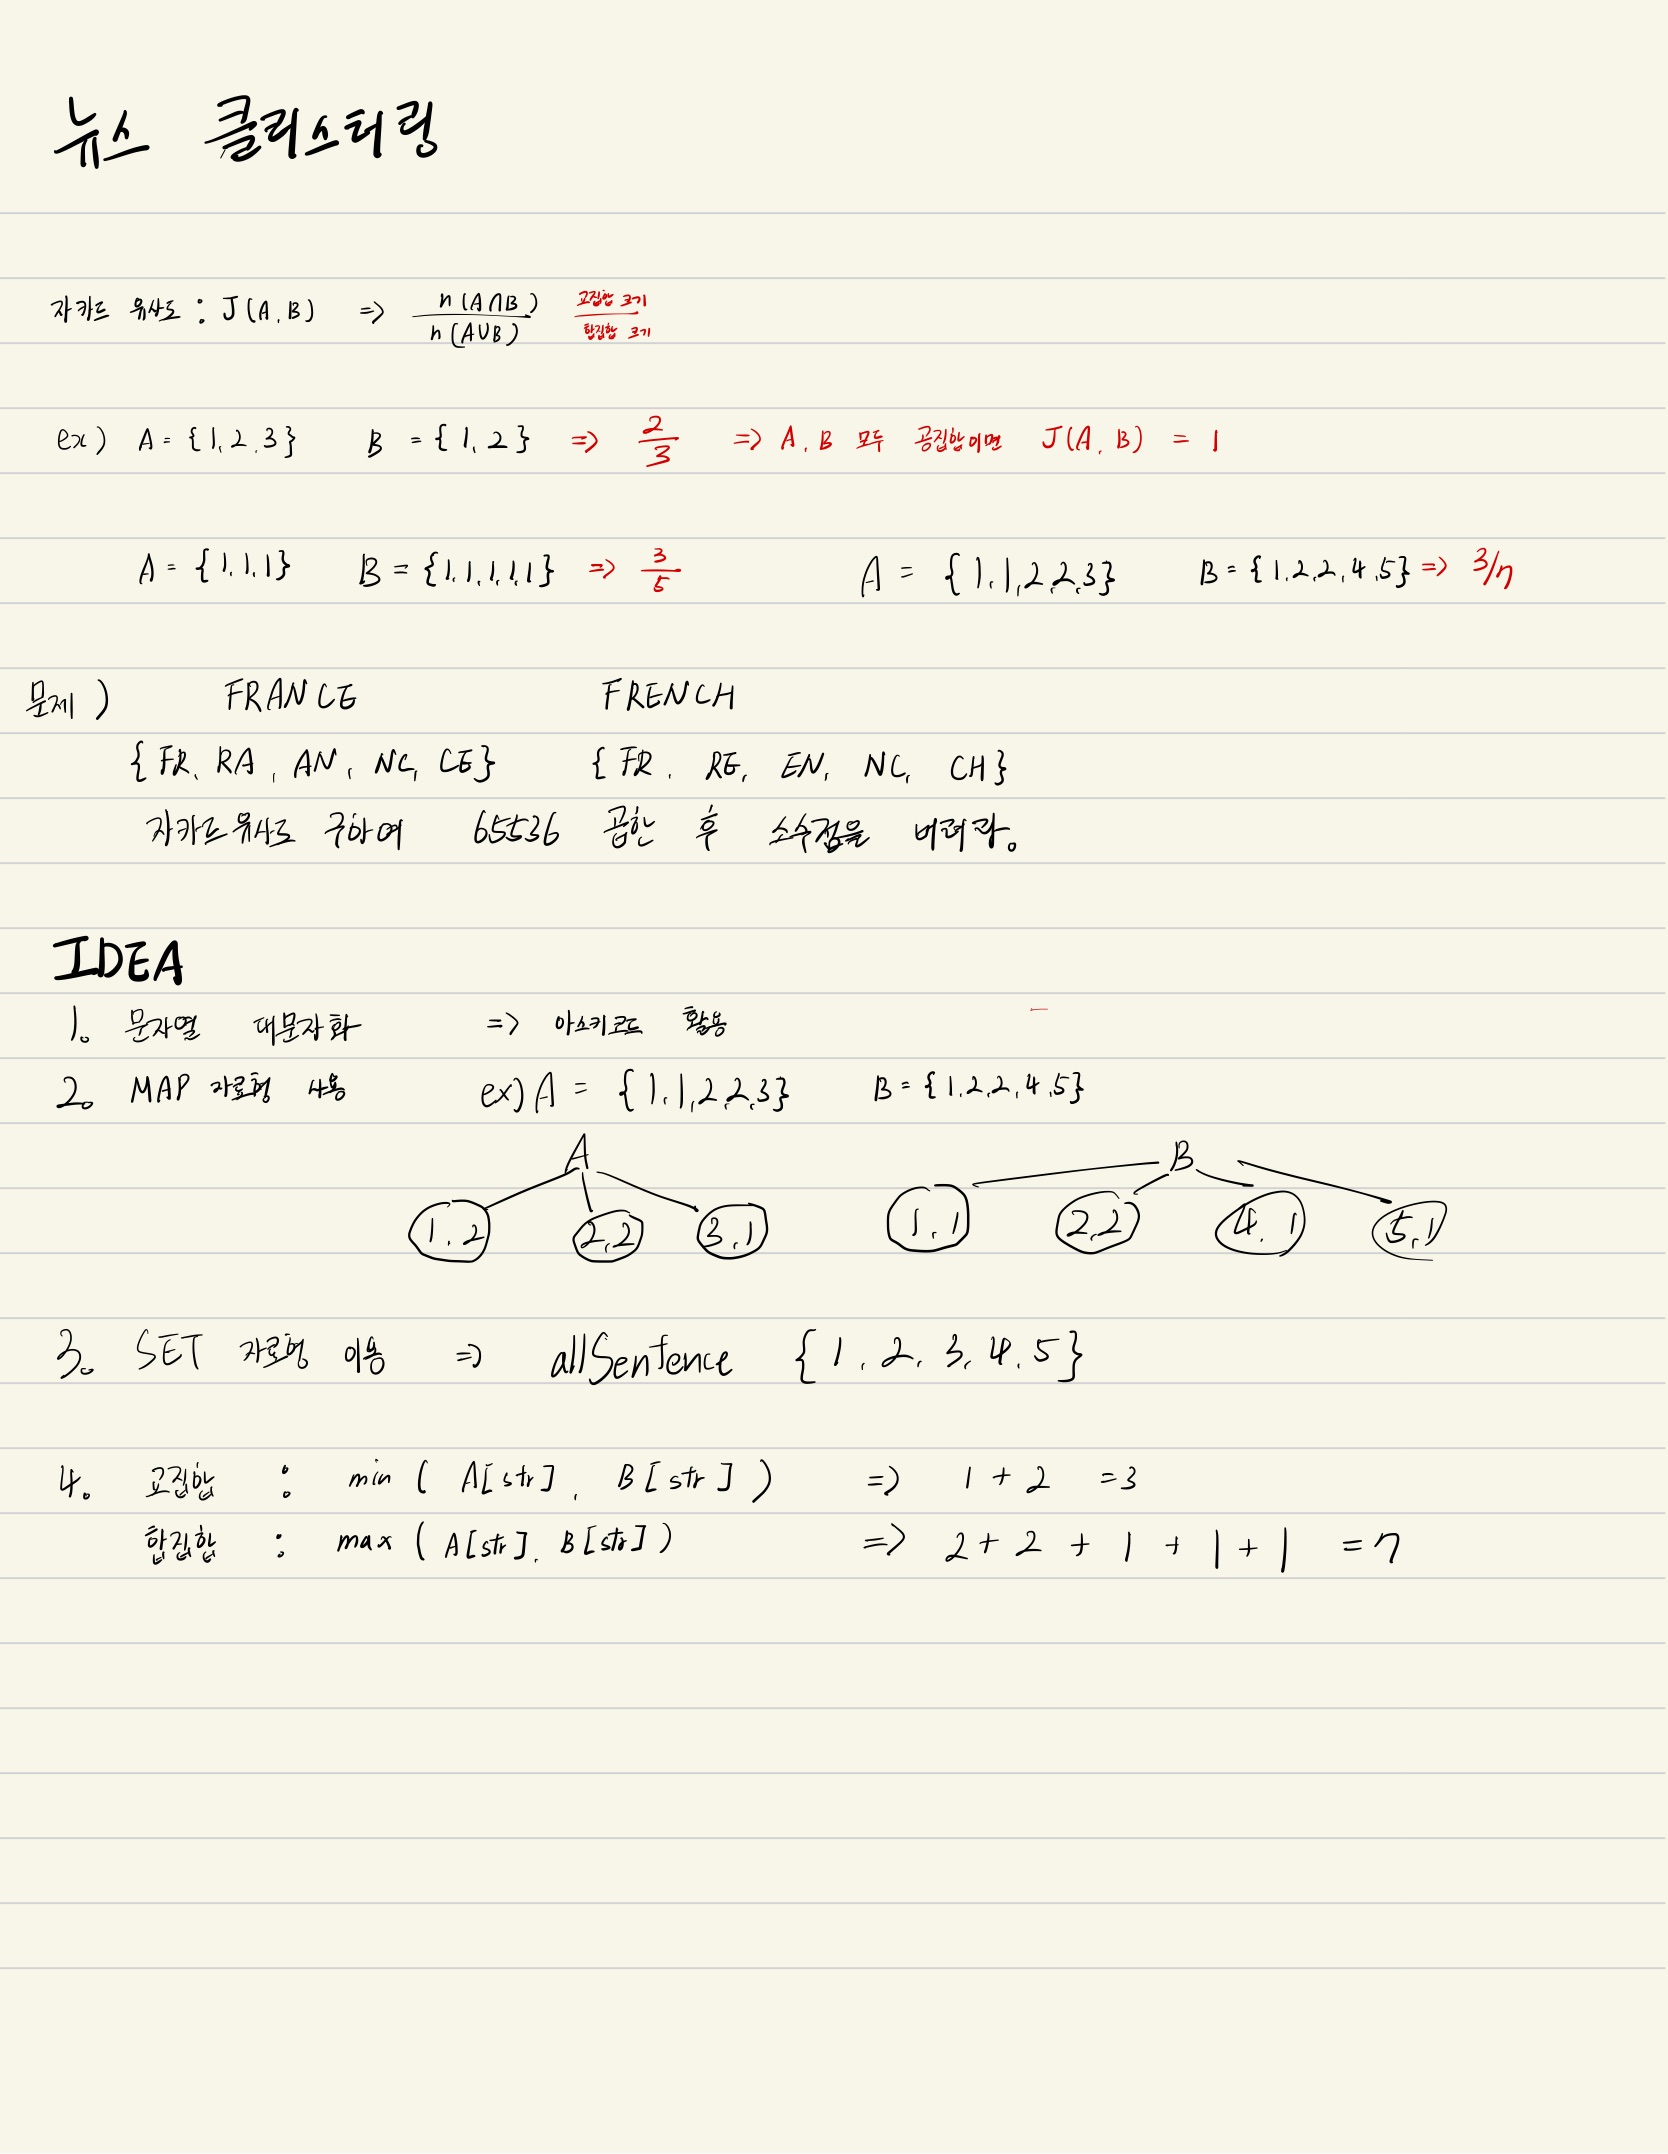 뉴스 클러스터링
자카드 유사도 : J(A, B) => n(A∩B) / n(A∪B) 교집합 크기 / 합집합 크기
ex) A = {1, 2, 3} B = {1, 2} => 2/3 => A, B 모두 공집합이면 J(A, B) = 1
A = {1, 1, 1} B = {1, 1, 1, 1, 1} => 3/5 A = {1, 1, 2, 2, 3} B = {1, 2, 2, 4, 5} => 3/7
문제) FRANCE FRENCH
{FR, RA, AN, NC, CE} {FR, RE, EN, NC, CH}
자카드유사도 구하여 65536 곱한 후 소수점을 버려라.
IDEA
1. 문자열 대문자화 => 아스키코드 활용
2. MAP 자료형 사용 ex) A = {1, 1, 2, 2, 3} B = {1, 2, 2, 4, 5}
A B
1, 2 2, 2 3, 1 1, 1 2, 2 4, 1 5, 1
3. SET 자료형 이용 => allSentence {1, 2, 3, 4, 5}
4. 교집합 : min (A[str], B[str]) => 1 + 2 = 3
합집합 : max (A[str], B[str]) => 2 + 2 + 1 + 1 + 1 = 7